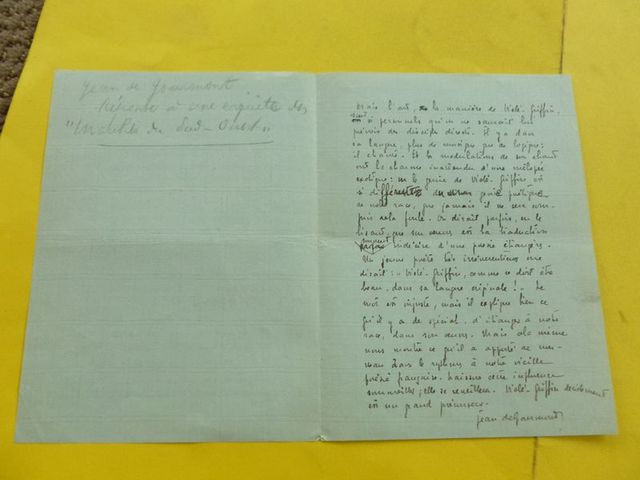 Jean de Gourmont
Réponse à une enquête des
"
mais l'art, la manière de Vielé-Griffin,
si personnels qu'on ne saurait lui
prévoir des disciples directs. Il y a dans
sa langue, plus de musique que de logique:
il chante. Et la modulation de son chant
a le charme inattendu d'une mélopée
exotique: le génie de Vielé-Griffin est
si différent du génie poétique
de notre race, que jamais il ne sera com-
pris de la foule. On dirait parfois, en le
lisant, que son œuvre est la traduction
d'une poésie étrangère.
Un jeune poète très irrévérencieux me
disait: "Vielé-Griffin, comme ce doit être
beau, dans sa langue originale!" Le
mot est injuste, mais il explique bien ce
qu'il y a de spécial, d'étranger à notre
race, dans son œuvre. Mais cela même
nous montre ce qu'il a apporté de nou-
veau dans le rythme à notre vieille
poésie française. Laissons cette influence
sommeiller; elle se réveillera. Vielé-Griffin décidément
est un grand précurseur.
Jean de Gourmont